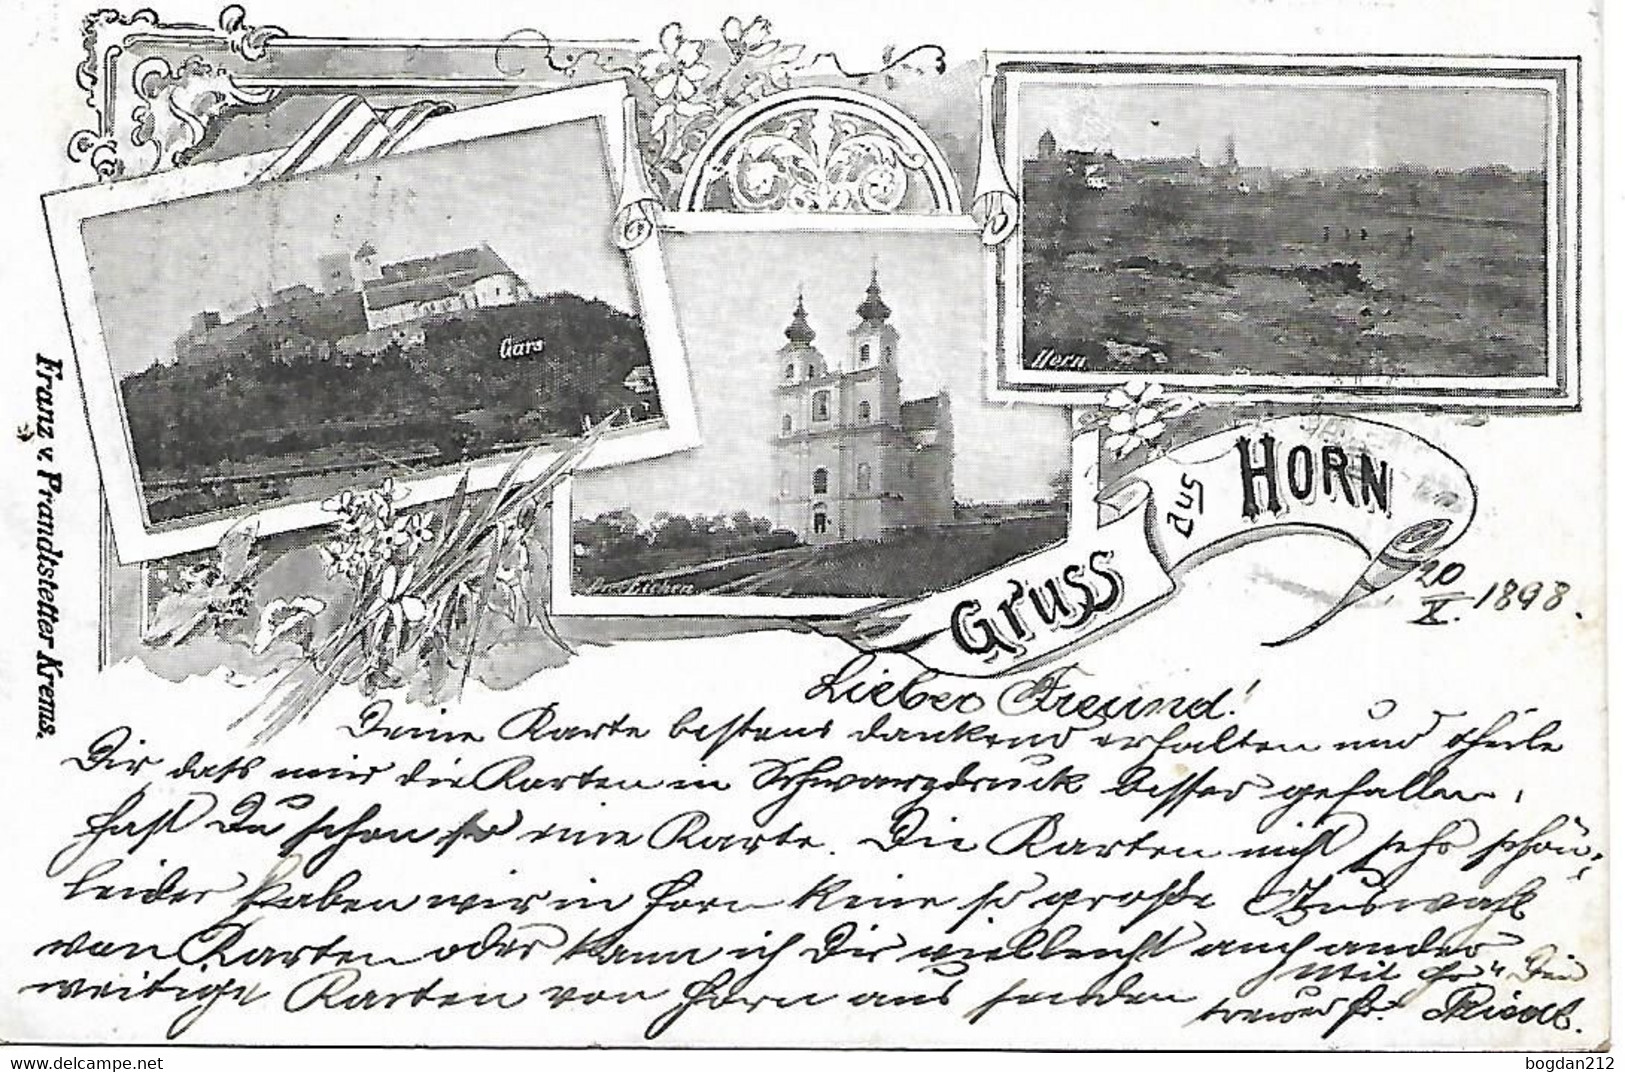 Gars
Horn
Dreieichen
Gruss aus HORN
20/X. 1898.
Franz v. Prandtstetter Krems.
Lieber Freund!
Deine Karte bestens dankend erhalten und theile
Dir daß mir die Karten in Schwarzdruck besser gefallen,
hast Du schon so eine Karte. Die Karten nicht sehr schön,
leider haben wir in Horn keine so große Auswahl
von Karten oder kann ich Dir vielleicht auch ander
weitige Karten von Horn aus senden
Mit Gr. Dein
treuer Fr. Riedl.
www.delcampe.net
bogdan212